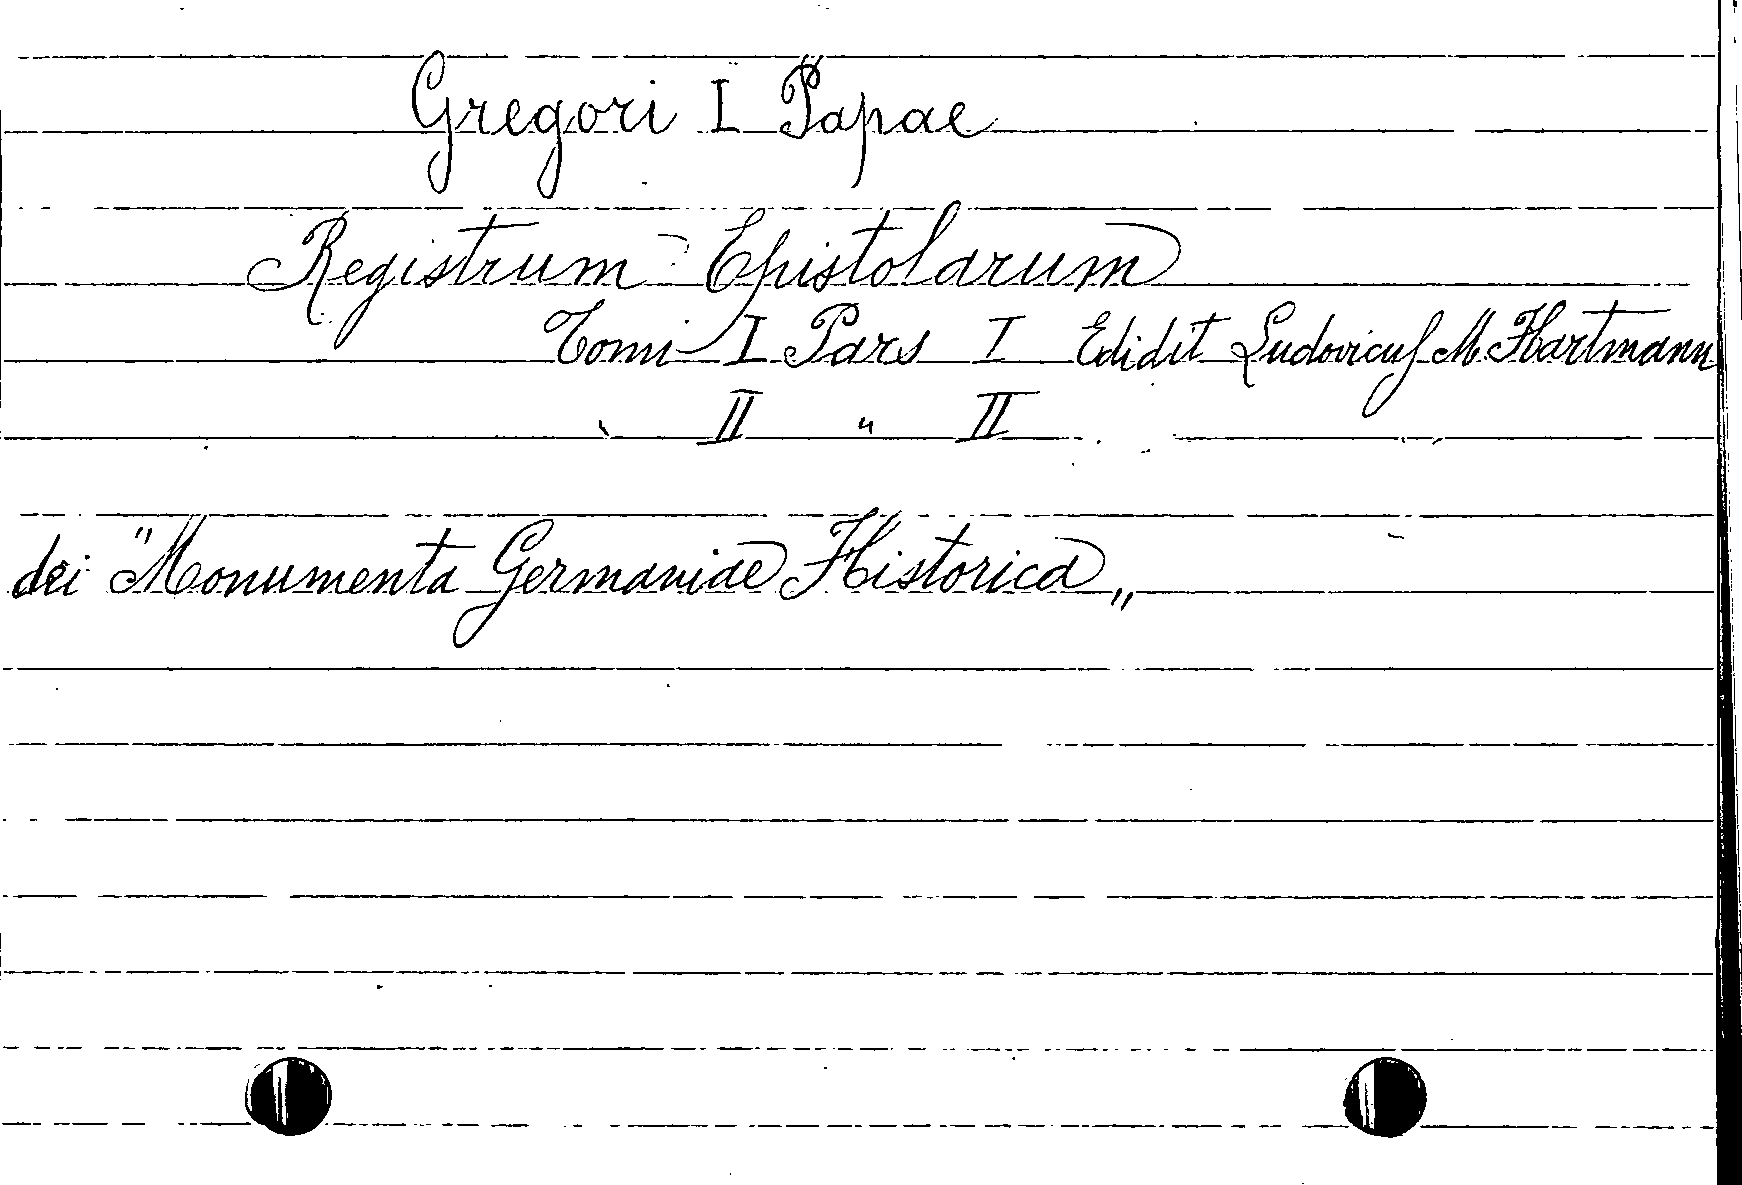 Gregori I Papae
Registrum Epistolarum
Tomi I Pars I Edidit Ludovicus M. Hartmann
" II " II
dei "Monumenta Germaniae Historica„